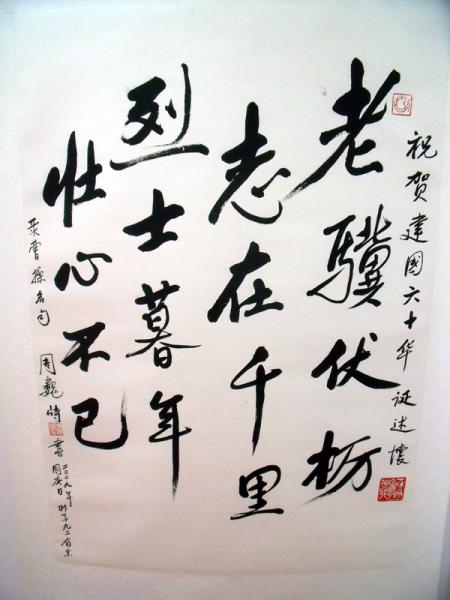 祝贺建国六十华诞述懷
老驥伏枥
志在千里
烈士暮年
壮心不已
录曹操名句 周巍峙 書
二〇〇九年
国庆日 时年九三